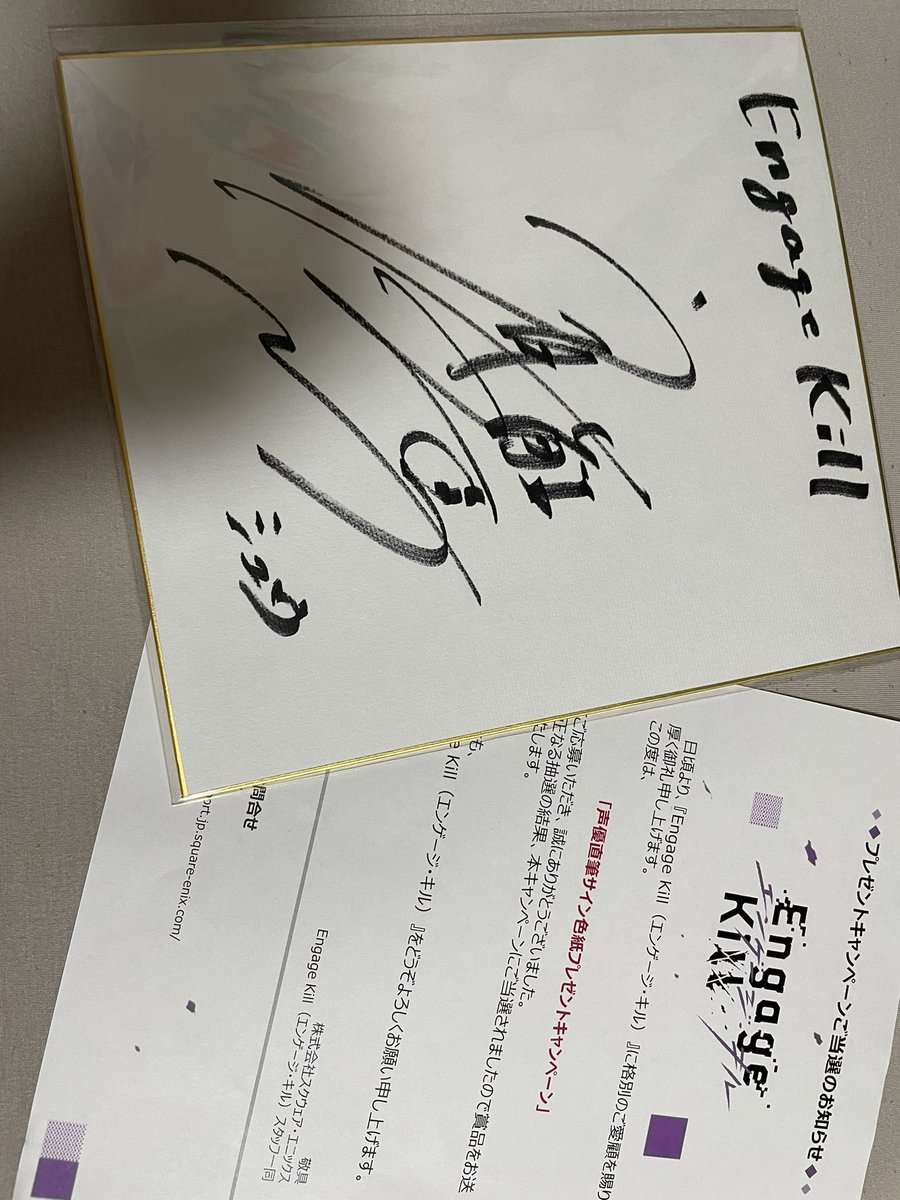 Engage Kill
ミコワ
◆◆プレゼントキャンペーンご当選のお知らせ◆◆
Engage
Kill
エンゲージ・キル
日頃より、『Engage Kill（エンゲージ・キル）』に格別のご愛顧を賜り
厚く御礼申し上げます。
この度は、
「声優直筆サイン色紙プレゼントキャンペーン」
ご応募いただき、誠にありがとうございました。
正なる抽選の結果、本キャンペーンにご当選されましたので賞品をお送
たします。
も、
e Kill（エンゲージ・キル）』をどうぞよろしくお願い申し上げます。
敬具
株式会社スクウェア・エニックス
Engage Kill（エンゲージ・キル）スタッフ一同
問合せ
ort.jp.square-enix.com/